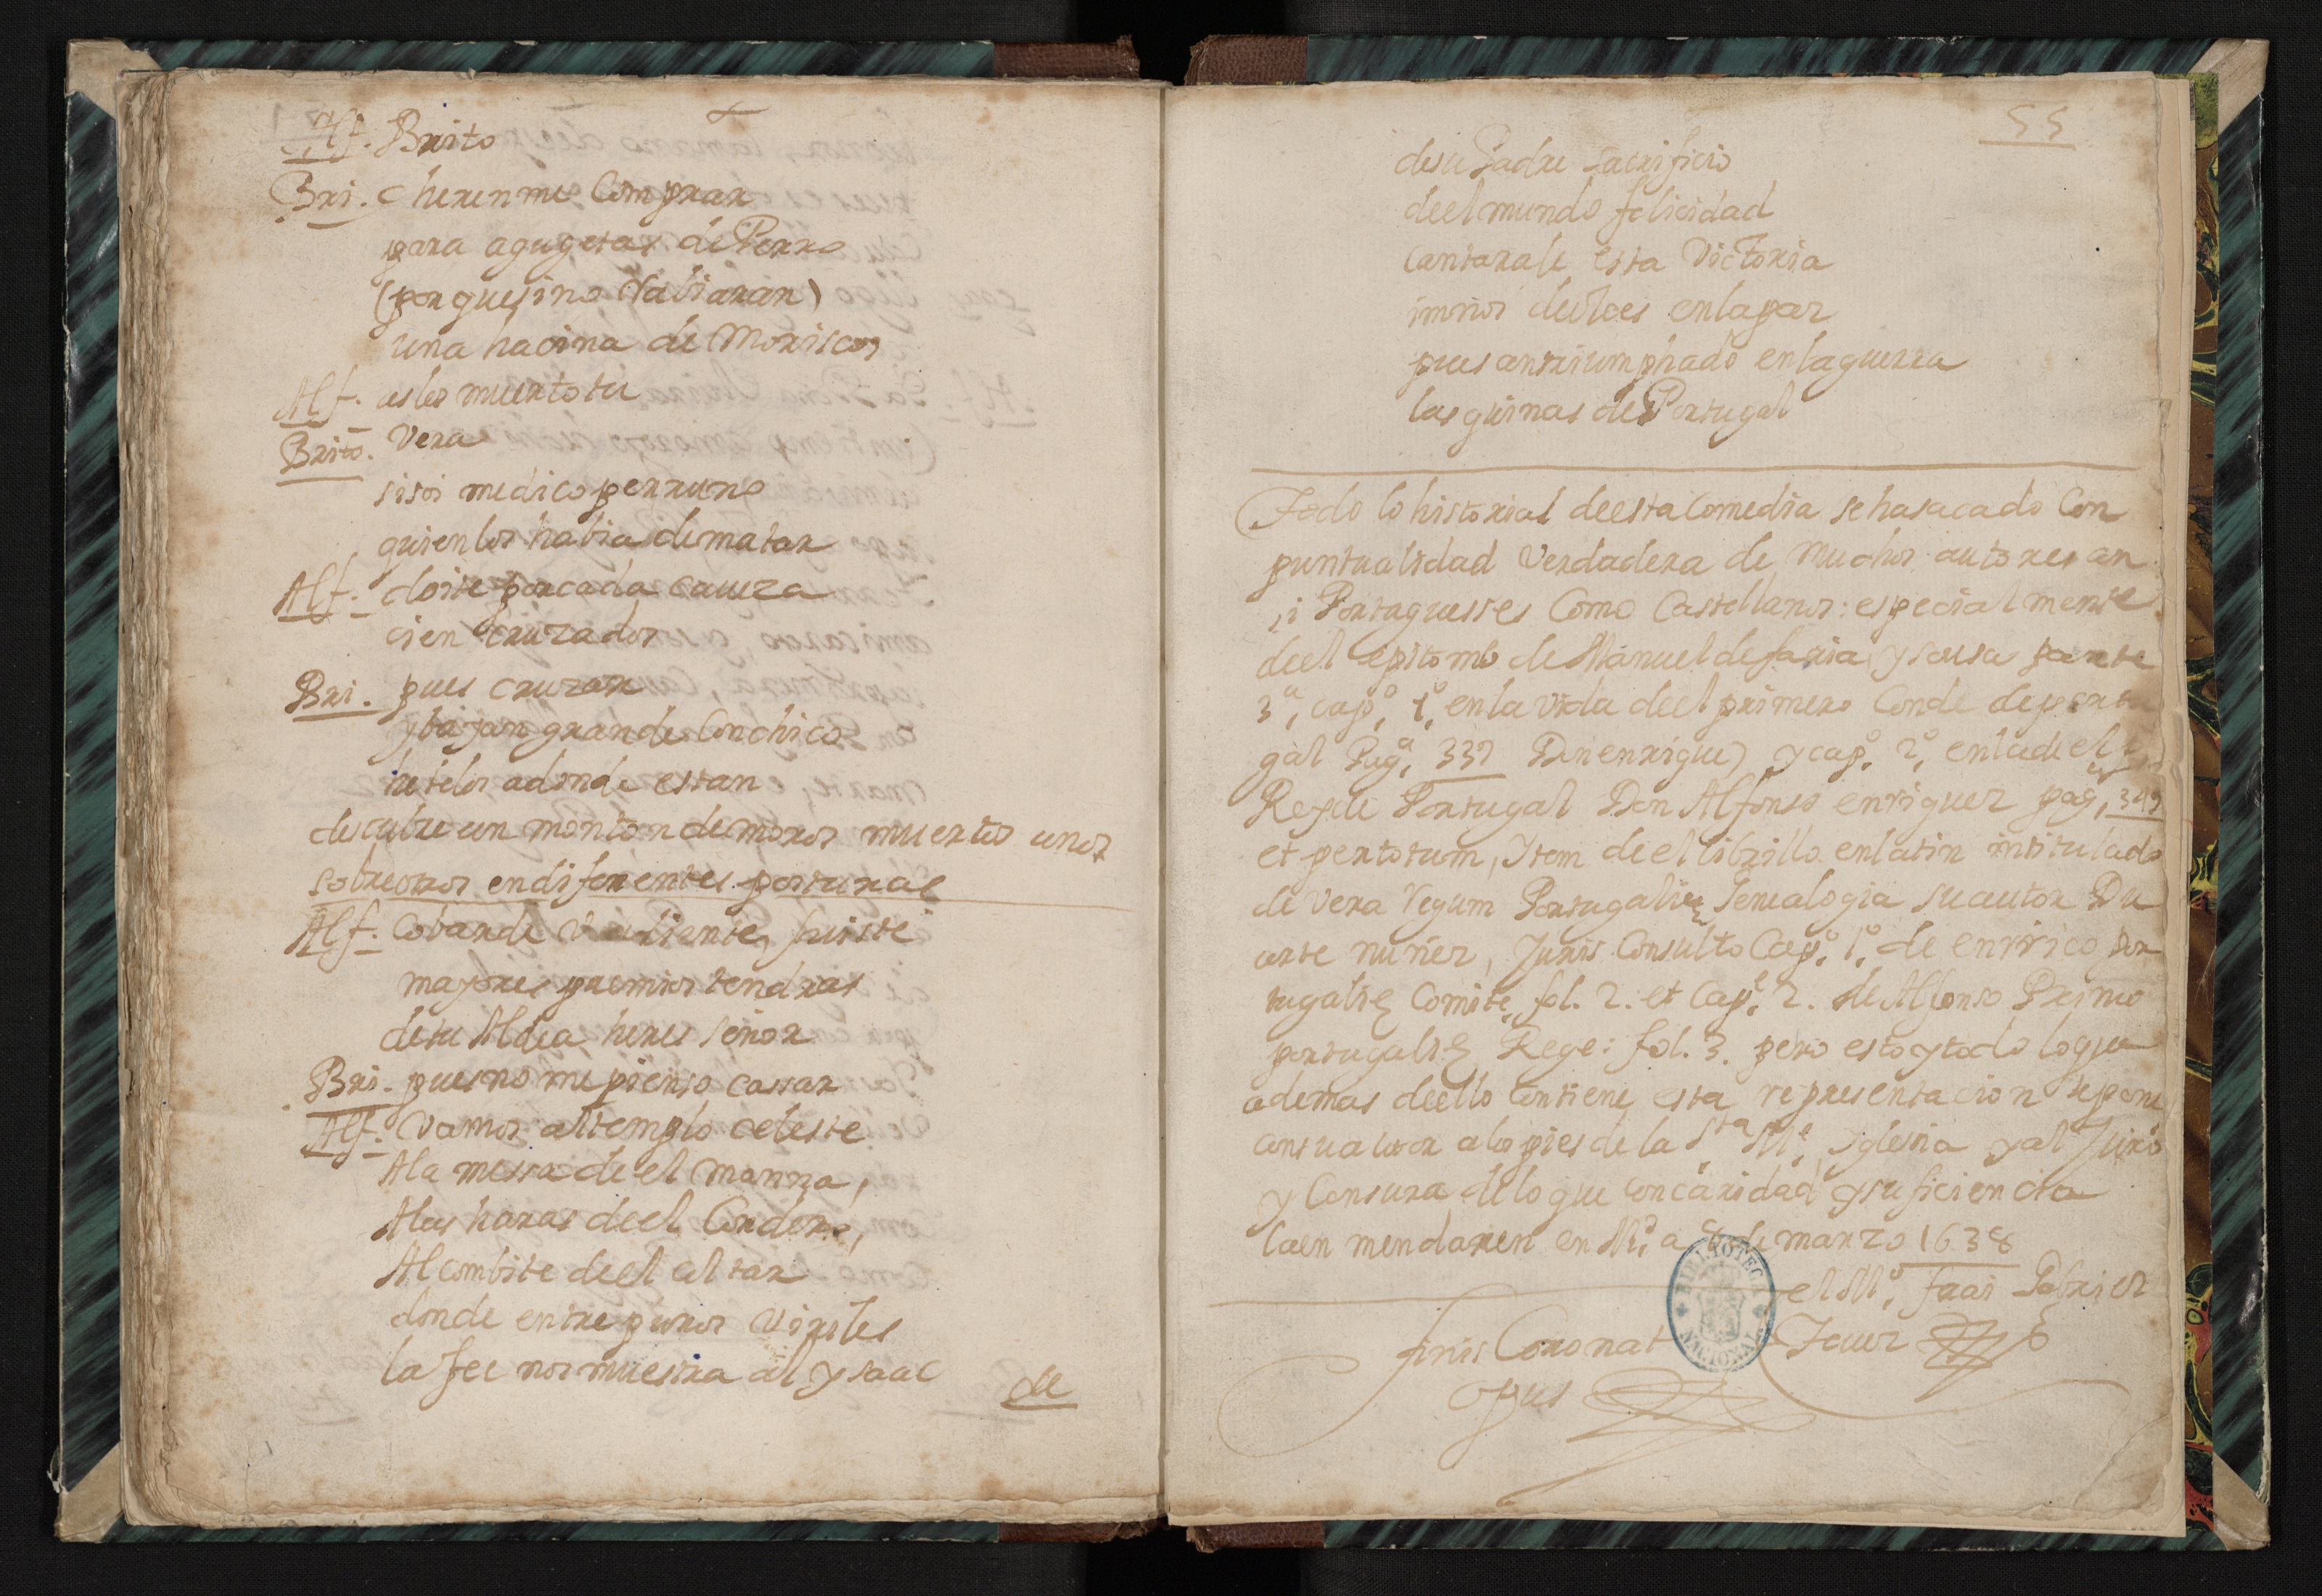 Alf. Brito
Bri. cherenme Comprar
para agugetas de Perro
(porque sino Rabiaran)
una hacina de Moriscos
Alf. as los muerto tu
Brito. Vera
si soi medico perruno
quien los habia de matar
Alf. doite por cada caueza
cien cruzados
Bri. pues cruzar
y bajan grande Con chico
helos adonde estan
descubre un monton de moros muertos unos
sobre otros en diferentes posturas
Alf. Cobarde Valiente, fuiste
mayores premios tendras
de tu Aldea heres señor
Bri. pues no me pienso cassar
Alf. Vamos al templo celeste
A la messa de el manna,
A las haras de el Cordero,
Al combite de el altar
donde entre puros Viriles
la fee nos muestra al ysaac
de
55
de su Padre sacrificio
de el mundo felicidad
Cantarale esta Victoria
imnos dulces en la paz
pues an triumphado en la guerra
las quinas de Portugal
Todo lo historial de esta Comedia se ha sacado Con
puntualidad Verdadera de muchos autores an
si Portuguesses Como Castellanos: especialmente
de el epitome de Manuel de faria y sousa parte
3ª, capº, 1º, en la vida de el primero Conde de portu
gal Pagª, 337 Don enrique) y capº. 2º, en la de el
Rey de Portugal Don Alfonso enriquez pag, 349
et per totum, ytem de el librillo en latin intitulado
de vera Regum Portugaliæ Genealogia su autor Du
arte nuñez, Juris Consulto Capº. 1º. de enrrico Por
tugalię Comite, fol. 2. et Capº. 2. de Alfonso Primo
portugalię Rege: fol. 3. pero esto y todo lo que
ademas de ello Contiene esta representacion se pone
con su autor a los pies de la Sta Me, yglesia y al Juiçio
y Censura de los que con caridad y suficiencia
la enmendaren en Md. a de marzo 1638
el Mº. frai
finis Coronat
opus
BIBLIOTECA NACIONAL